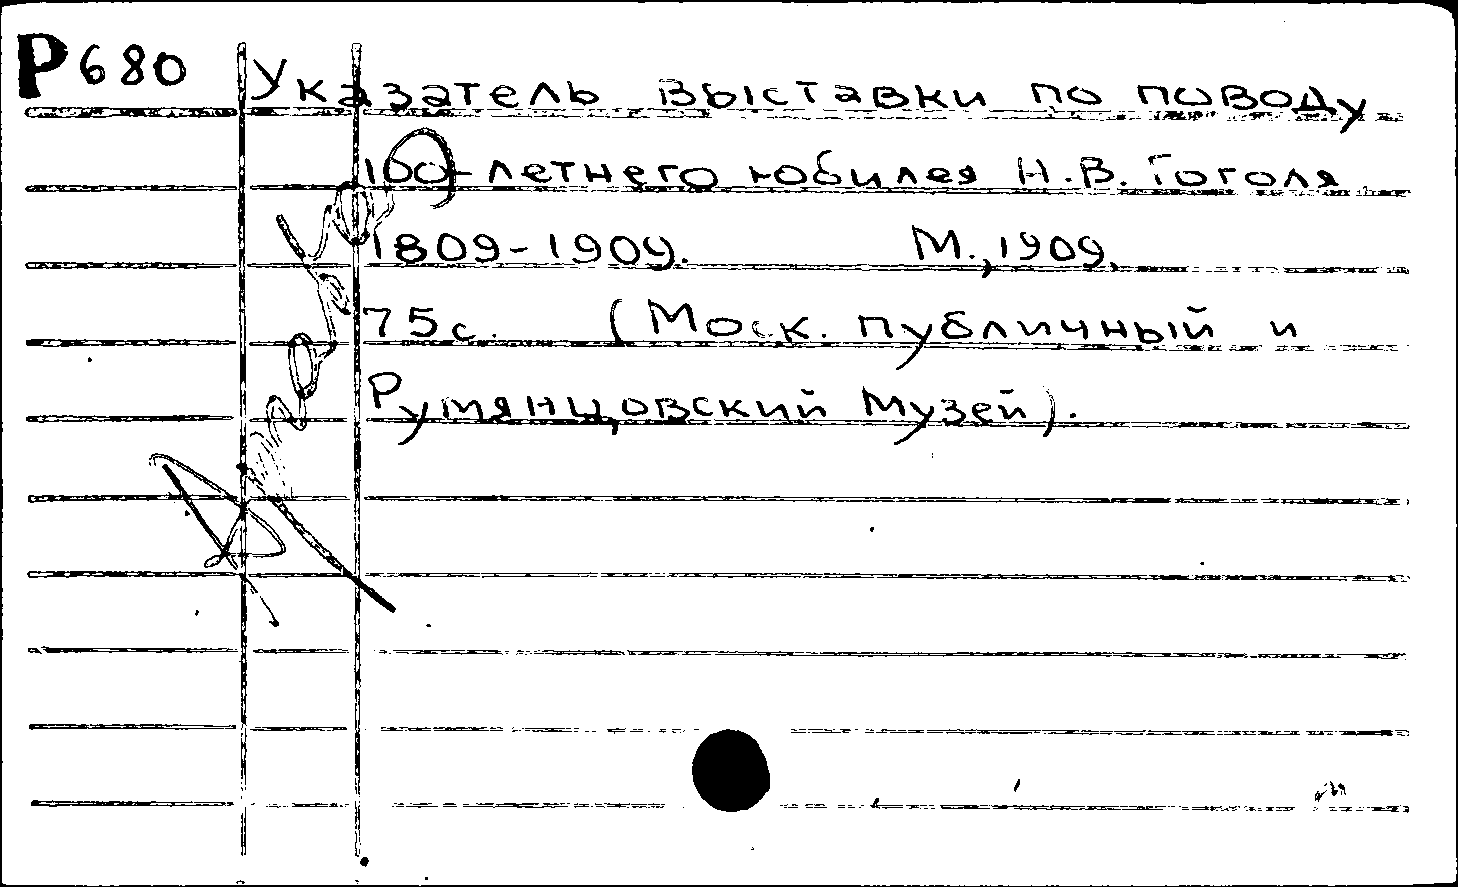 Р680 Указатель выставки по поводу
100-летнего юбилея Н.В. Гоголя
1809-1909. М., 1909,
75с. (Моск. публичный и
Румянцовский музей).